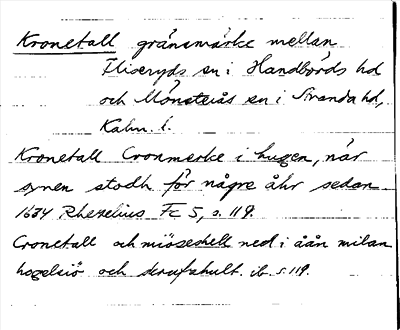 Kronetall gränsmärke mellan
Fliseryds sn i Handbörds hd
och Mönsterås sn i Stranda hd,
Kalm. l.
Kronetall Cronmerke i hugen, når
synen stodh för någre åhr sedan
1634 Rhezelius Fc 5, s. 119.
Cronetall och miösehell ned i åån milan
hogelsiö och derafshult. ib. s. 119.